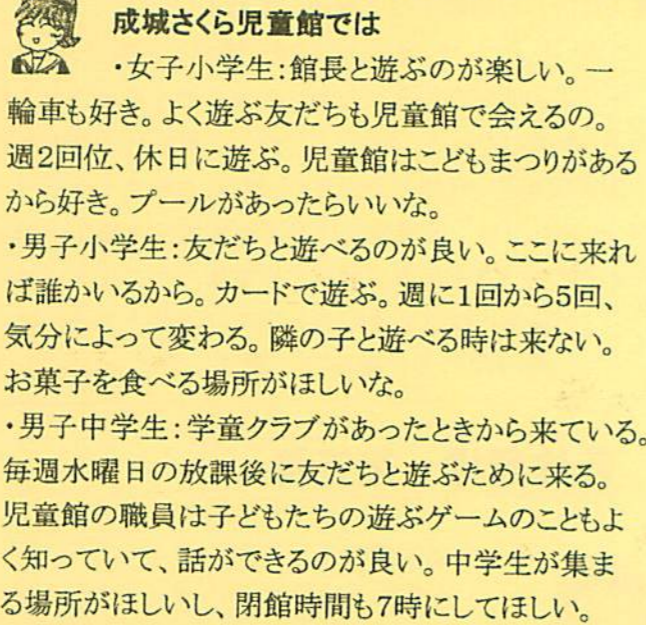 成城さくら児童館では
・女子小学生:館長と遊ぶのが楽しい。一
輪車も好き。よく遊ぶ友だちも児童館で会えるの。
週2回位、休日に遊ぶ。児童館はこどもまつりがある
から好き。プールがあったらいいな。
・男子小学生:友だちと遊べるのが良い。ここに来れ
ば誰かいるから。カードで遊ぶ。週に1回から5回、
気分によって変わる。隣の子と遊べる時は来ない。
お菓子を食べる場所がほしいな。
・男子中学生:学童クラブがあったときから来ている。
毎週水曜日の放課後に友だちと遊ぶために来る。
児童館の職員は子どもたちの遊ぶゲームのこともよ
く知っていて、話ができるのが良い。中学生が集ま
る場所がほしいし、閉館時間も7時にしてほしい。